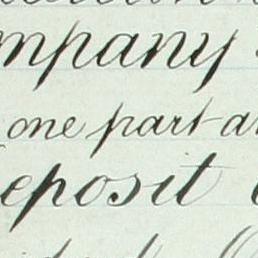 mpany
one part a
eposit